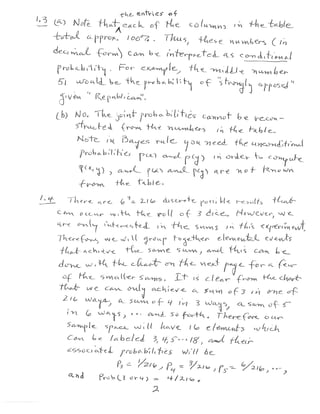 the entries of
1.3 (a) Note that each of the columns in the table
total approx. 100%. Thus, these numbers (in
decimal form) can be interpreted as conditional
probability. For example, the middle number
51 would be the probability of "strongly opposed"
given "Republican".
(b) No. The joint probabilities cannot be recon-
structed from the numbers in the table.
Note in Bayes rule you need the unconditional
probabilities p(x) and p(y) in order to compute
p(x,y), and p(x) and p(y) are not known
from the table.
1.4. There are 6³ = 216 discrete possible results that
can occur with the roll of 3 dice. However, we
are only interested in the sums in this experiment.
Therefore, we will group together elemental events
that achieve the same sum, and this can be
done with the chart on the next page for a few
of the smaller sums. It is clear from the chart
that we can only achieve a sum of 3 in one of
216 ways, a sum of 4 in 3 ways, a sum of 5
in 6 ways, ... and so forth. Therefore our
sample space will have 16 elements which
can be labeled 3, 4, 5 ... 18, and their
associated probabilities will be
P₃ = 1/216, P₄ = 3/216, P₅ = 6/216, ...,
and Prob(3 or 4) = 4/216.
2